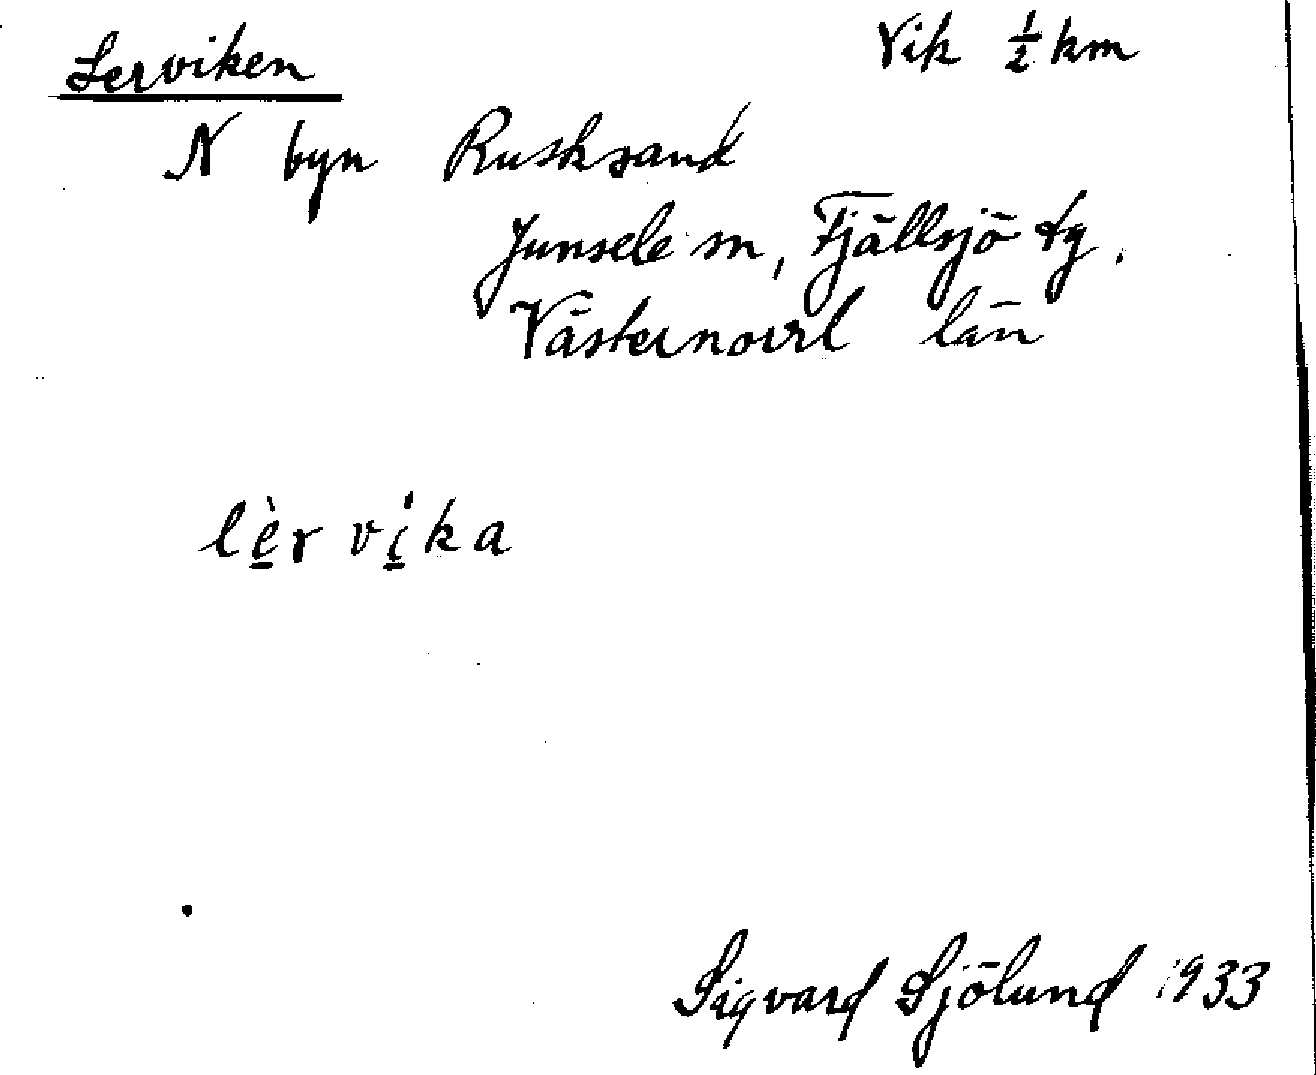 Lerviken Vik ½ km
N byn Rusksand
Junsele sn, Fjällsjö tg.
Västernorrl län
lè̱r vi̱ka
Sigvard Sjölund 1933